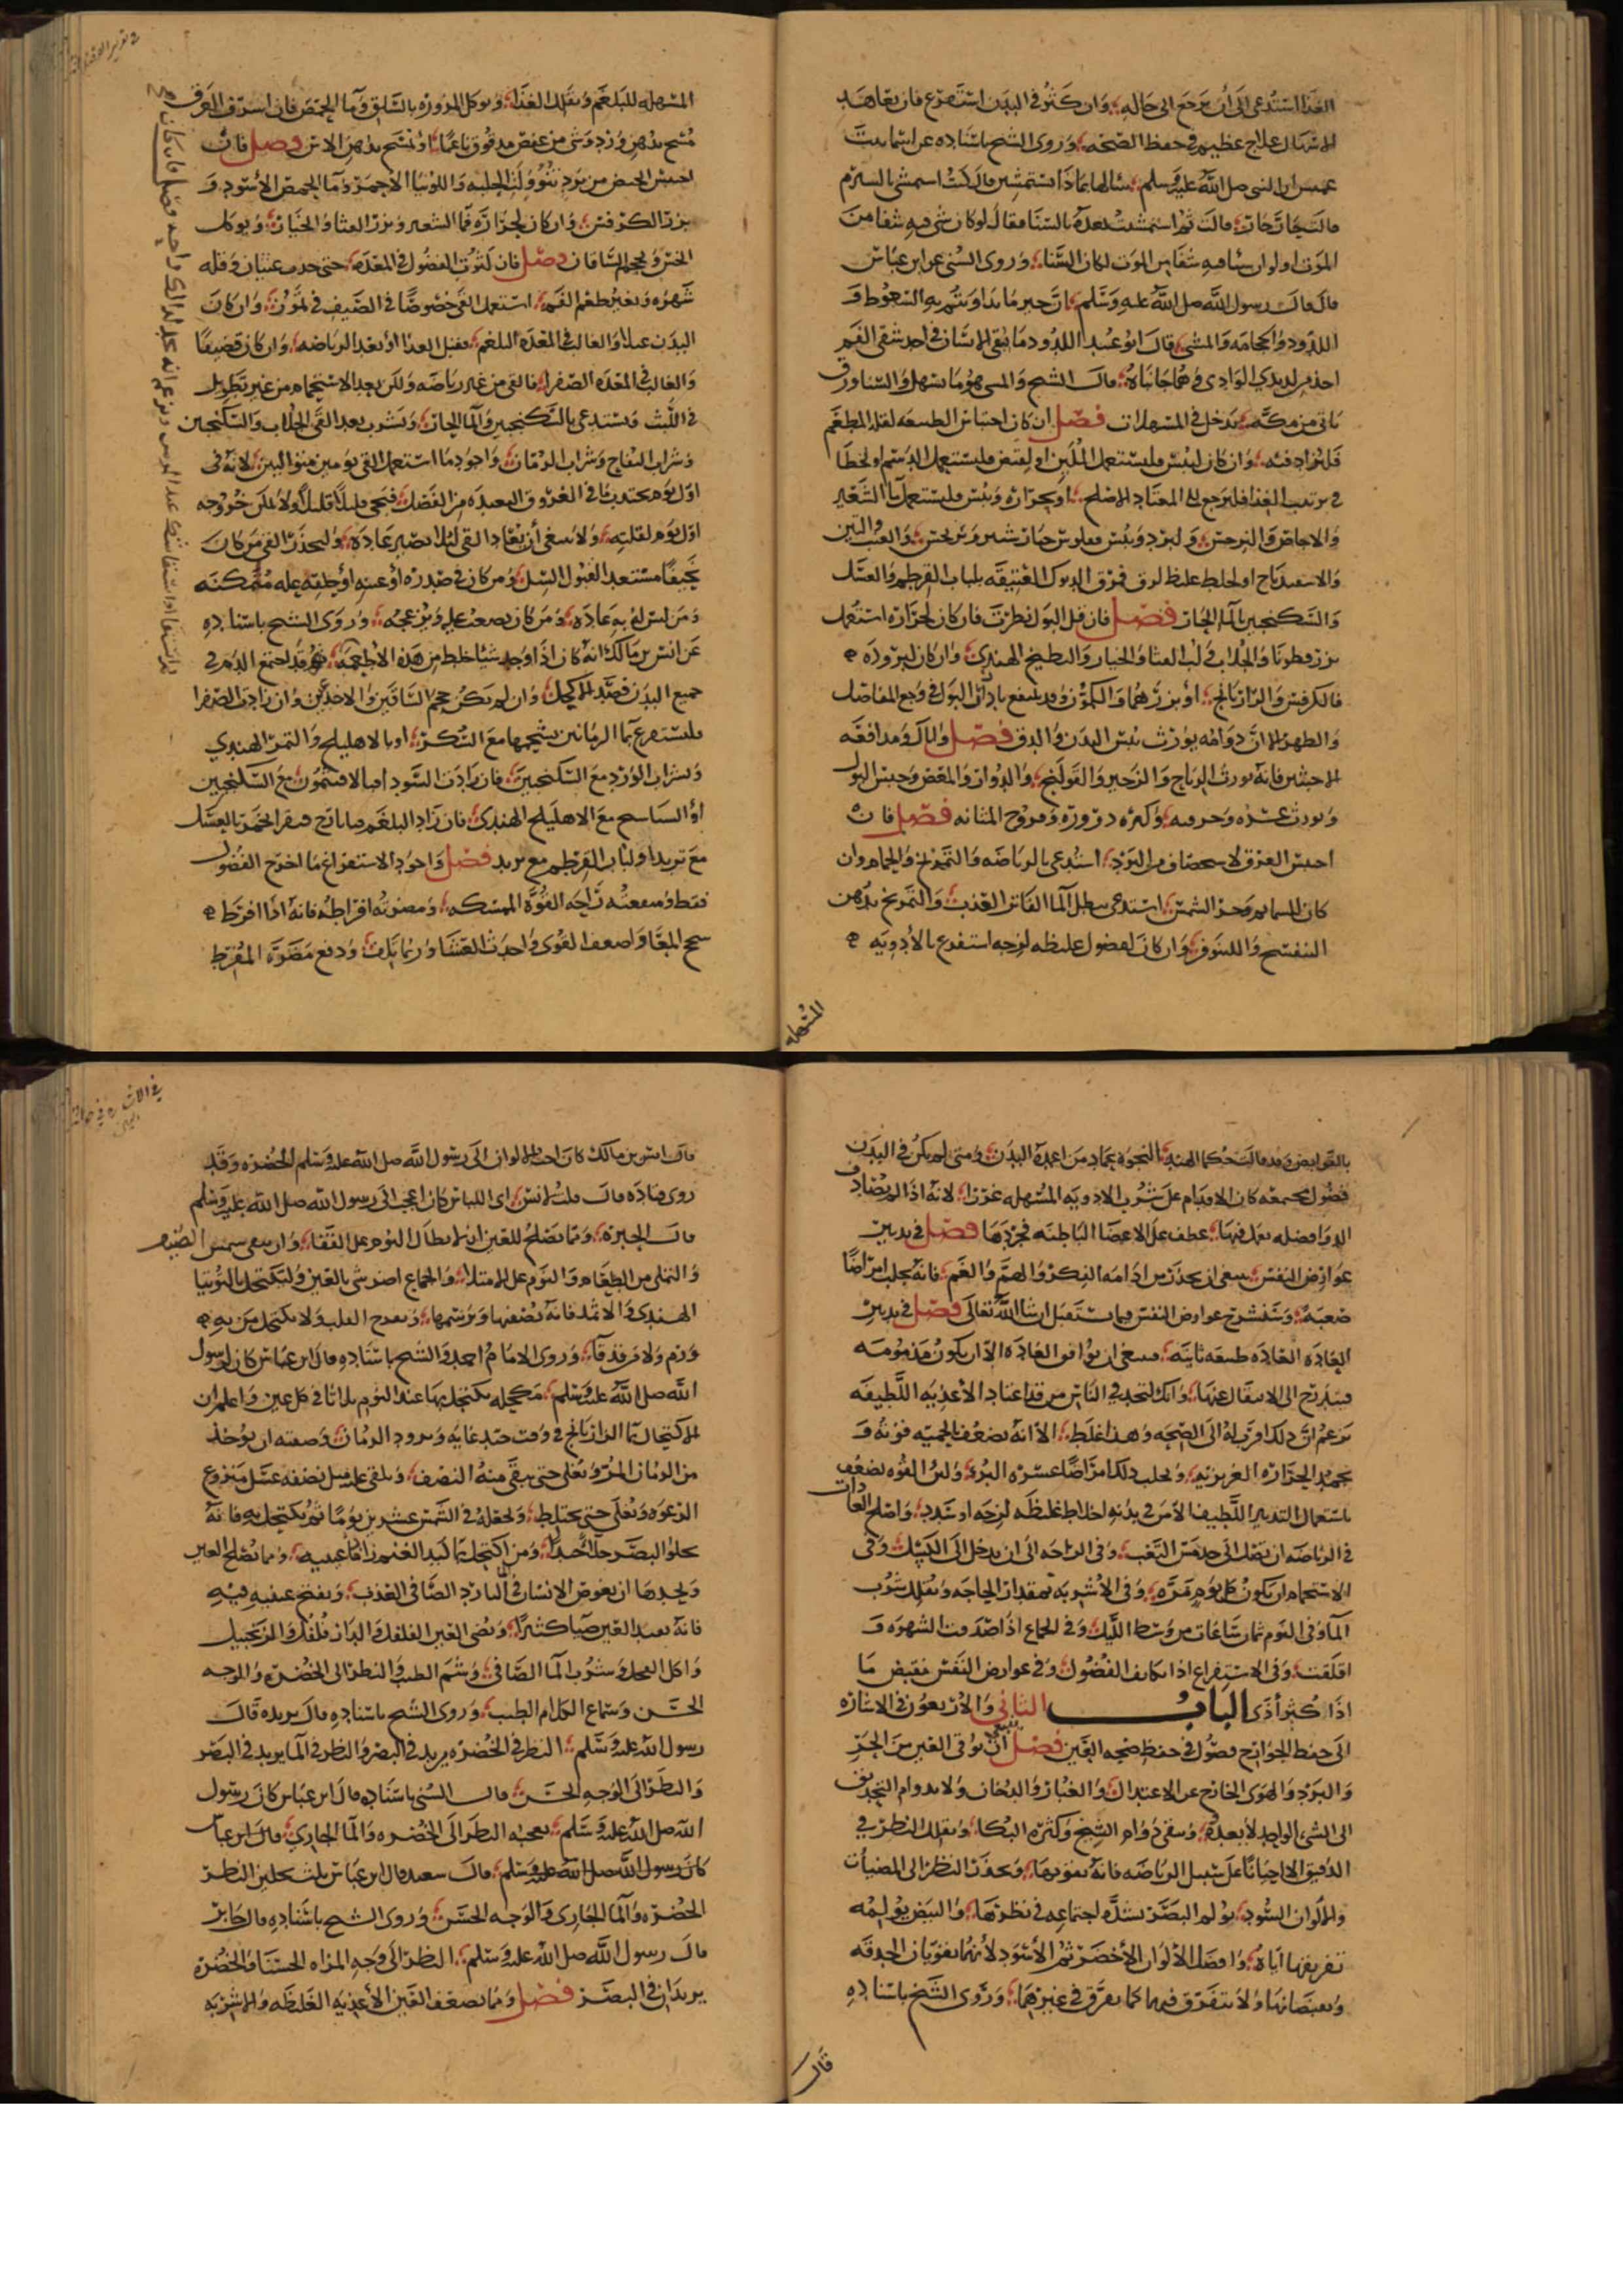 الغذا استدعى الى أن يرجع الى حاله وان كثر في البدن استفرغ فان تعاهد
الاسهال علاج عظيم في حفظ الصحة وروى الشيخ باسناده عن اسما بنت
عميس ان النبي صلى الله عليه وسلم سالها بماذا تستمشين قالت كنت استمشي بالشبرم
قالت حار حار قالت ثم استمشيت بعده بالسنا فقال لو كان شي فيه شفا من
الموت او لو ان شيا فيه شفا من الموت لكان السنا وروى السني عن ابن عباس
قال قال رسول الله صلى الله عليه وسلم ان خير ما تداويتم به السعوط و
اللدود والحجامه والمشي قال ابو عبيد اللدود ما سقي الانسان في احد شقي الفم
اخذ من لديدي الوادي وهما جانباه قال الشيخ والمشي هو ما يسهل والسنا ورق
ياتي من مكة يدخل في المسهلات فصل ان كان احتباس الطبيعه لقله المطعم
فليزاد فيه وان كان ليبس فليستعمل الملين او لقبض فليستعمل الدسم او لخطا
في ترتيب الغذا فليرجع الى المعتاد الاصلح او لحراره ويبس فليستعمل ما الشعير
والاجاص والترنجبين ولبرد ويبس فلوس خيار شنبر وترنجبين والعنب والتين
والاسفيدباج او لخلط غليظ لزق فمرق الديوك العتيقه بلباب القرطم والعسل
والسكنجبين بالما الحار فصل فان قل البول نظرت فان كان لحرارة استعمل
بزر قطونا والجلاب ولب القثا والخيار والبطيخ الهندي وان كان لبرودة
فالكرفس والرازيانج او بزرهما والكمون وقد ينتفع بادرار البول في وجع المفاصل
والظهر الا ان دوامه يورث يبس البدن والدق فصل واياك ومدافعه
الاخبثين فانه يورث الرياح والزحير والقولنج والدوار والمغص وحبس البول
ويورث عسره وحرقه وكثره دروره وقروح المثانه فصل فان
احتبس العرق لاستحصاف من البرد استدعي بالرياضه والتمريخ والحمام وان
كان للسمايم وحر الشمس استدعي بنطل الما الفاتر العذب والتمريخ بدهن
البنفسج والنينوفر وان كان لفضول غليظه لزجه استفرغ بالأدويه
المسهله
في تدبير
المسهله للبلغم وتقليل الغذا ويوكل المزوره بالسلق وما الحمص فان اسرف العرق
مسح بدهن ورد وشي من عفص مدقوق ناعما او تمسح بدهن الاس فصل فان
احتبس الحيض من برد تنوول الحلبه واللوبيا الأحمر وما الحمص الأسود و
بزر الكرفس وان كان لحراره فما الشعير وبزر القثا والخيار ويوكل
الخس ويحجم الساقان فصل فان كثرت الفضول في المعده حتى حدث غثيان وقله
شهوه وتغير طعم الفم استعمل القي خصوصا في الصيف في تموز وان كان
البدن عبلا والغالب في المعده البلغم فقبل الغذا أو بعد الرياضه وان كان قضيفا
والغالب في المعده الصفرا فالقي من غير رياضه ولكن بعد الاستحمام من غير تطويل
في اللبث ويستدعي بالسكنجبين والما الحار ويشرب بعد القي الجلاب والسكنجبين
وشراب التفاح وشراب الرمان واجود ما استعمل القي يومين متواليين لانه في
اول يوم يجتذب ما في العروق البعيده من الفضل فيجي قليلا قليلا ولا يمكن خروجه
اول يوم لقلته ولا ينبغي أن يعتاد القي لئلا يصير عاده وليحذر القي من كان
نحيفا مستعد القبول السل ومن كان في صدره او عينه او حلقه عله متمكنه
ومن ليس له به عاده ومن كان يصعب عليه ويزعجه وروى الشيخ باسناده
عن انس بن مالك انه كان اذا اوجد شيا خلط من هذه الأطعمه فهو قد اجتمع الدم في
جميع البدن قصد الاكحل وان لم يكن حجم الساقين والاخدعين وان زادت الصفرا
فليستفرغ بما الرمانين بشحمها مع السكر او بالاهليلج والتمر الهندي
وشراب الورد مع السكنجبين فان زادت السودا فبالافتيمون مع السكنجبين
أو البسايج مع الاهليلج الهندي فان زاد البلغم فبايارج فيقرا مخمر بالعسل
مع تربد او لباب القرطم مع تربد فصل واجود الاستفراغ ما اخرج الفضول
فقط ومنفعته راحه القوه الممسكه ومضرته افراطه فانه اذا افرط
سحج المعا واضعف القوى واحدث الغشا وربما اتلف ودفع مضرة المفرط
بالقوابض وقد قالت حكما الهند النجو عماد من اعمده البدن ومتى لم يكن في البدن
فضول مجتمعه كان الاقدام على شرب الادويه المسهله غررا لانه اذا لم يصادف
الدوا فضله يعمل فيها عطف على الاعضا الباطنه فجردها فصل في تدبير
عوارض النفس ينبغي ان يحذر من ادامه الفكر والهم والغم فانه يجلب امراضا
صعبه وسنشرح عوارض النفس فيما يستقبل ان شا الله تعالى فصل في تدبير
العاده العاده طبيعه ثانيه فينبغي ان توافق العاده الا ان يكون مذمومه
فيتدرج الى الانتقال عنها وانك لتجد في الناس من قد اعتاد الأغذيه اللطيفه
يزعم ان ذلك اقرب له الى الصحه وهذا غلط الا انه يضعف بالحميه قوته و
تخمد الحرارة الغريزيه ويجلب ذلك امراضا عسره البرء ولين القوه تضعف
باستعمال التدبير اللطيف الا من في بدنه اخلاط غليظه لزجه او سدد واصلح العادات
في الرياضه ان تقف الى حد مس التعب وفي الراحه الى ان يدخل الى الكسل وفي
الاستحمام ان يكون كل يوم مره وفي الأشربه بمقدار الحاجه وتقليل شرب
الما وفي النوم ثمان ساعات من وسط الليل وفي الجماع اذا صدقت الشهوه و
اقلقت وفي الاستفراغ اذا تكاثف الفضول وفي عوارض النفس فقبض ما
اذا كثر أذى الباب الثاني والأربعون في الاشاره
الى حفظ الجوارح فصول في حفظ صحه العين فصل ينبغي أن توقى العين من الحر
والبرد والهوى الخارج عن الاعتدال والغبار والدخان ولا يدوام التحديق
الى الشيء الواحد لا يعدوه وتتقي دوام الشبح وكثره البكا وتقليل النظر في
الدقيق الا احيانا على سبيل الرياضه فانه يقويها ويحذر النظر الى المضيات
والألوان السود تولم البصر بشده اجتماعه في نظرها والبيض يولمه
تفريقها اياه وافضل الألوان الأخضر ثم الأسود لأنهما يقويان الحدقه
ويقبضانها ولا يتفرق فيهما كما يفرق في غيرهما وروى الشيخ باسناده
قال
قال انس بن مالك كان احب الالوان الى رسول الله صلى الله عليه وسلم الخضره وقد
روى قتاده قال قلت لانس اي اللباس كان اعجب الى رسول الله صلى الله عليه وسلم
قال الحبره ومما يصلح للعين ان لا يطال النوم على القفا وان يتقى شمس الصيف
والتملي من الطعام والنوم على الامتلاء والجماع اضر شي بالعين وليكتحل بالتوتيا
الهندي والاثمد فانه يصفيها ويرسمها ويفرح القلب ولا يكتحل من به
ورم ولا مرقد قا وروى الامام احمد والشيخ باسناده قال ابن عباس كان لرسول
الله صلى الله عليه وسلم مكحله يكتحل بها عند النوم ثلاثا في كل عين واعلم ان
الاكتحال بما الرازيانج في وقت صب غايه وبرود الرمان وصفته ان يوخذ
من الرمان المز ويغلى حتى يبقى منه النصف ويلقى عليه مثل نصفه عسل منزوع
الرغوه ويغلى حتى يختلط ويجعله في الشمس عشرين يوما ثم يكتحل به فانه
يجلو البصر جلا جيدا ومن اكتحل بما كبد الغنم زال عشا عينيه ومما يصلح العين
ويحدها ان يغوص الانسان في الما البارد الصافي العذب ويفتح عينيه فيه
فانه يفيد العين ضيا كثيرا ويضي العين الفلفل والدار فلفل والزنجبيل
واكل البصل وشرب الما الصافي وشم الطيب والنظر الى الخضره والوجه
الحسن وسماع الكلام الطيب وروى الشيخ باسناده قال بريده قال
رسول الله عليه وسلم النظر في الخضره يزيد في البصر والنظر في الما يزيد في البصر
والنظر الى الوجه الحسن قال السني باسناده قال ابن عباس كان رسول
الله صلى الله عليه وسلم يعجبه النظر الى الخضره والما الجاري وقال ابن عباس
كان رسول الله صلى الله عليه وسلم قال سعيد قال ابن عباس ثلث يجلين النظر
الخضره والما الجاري والوجه الحسن وروى الشيخ باسناده قال جابر
قال رسول الله صلى الله عليه وسلم النظر الى وجه المراه الحسنا والخضره
يزيدان في البصر فصل ومما يضعف العين الأغذيه الغليظه والاشربه